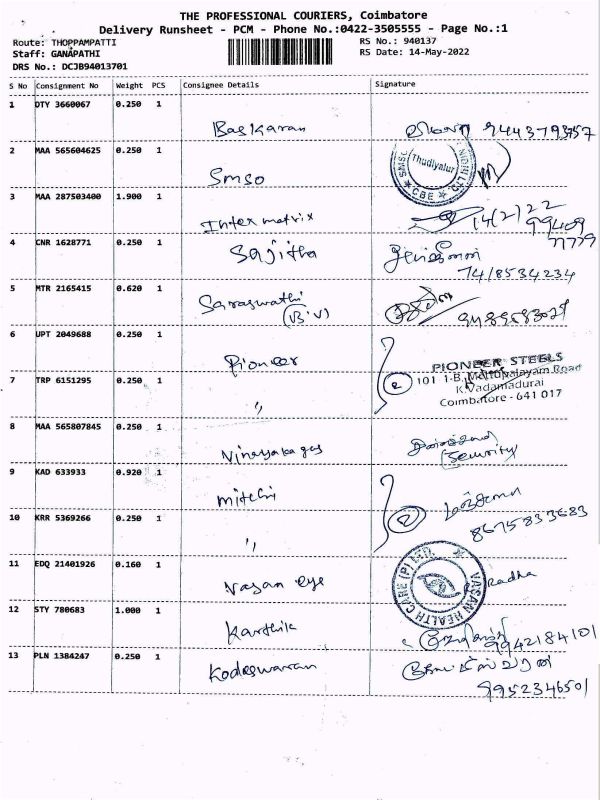 THE PROFESSIONAL COURIERS, Coimbatore
Delivery Runsheet - PCM - Phone No.:0422-3505555 - Page No.:1
Route: THOPPAMPATTI
Staff: GANAPATHI
DRS No.: DCJB94013701
RS No.: 940137
RS Date: 14-May-2022
S No Consignment No Weight PCS Consignee Details Signature
1 DTY 3660067 0.250 1
Baskaran
2 MAA 565604625 0.250 1
SMSO
Thudiyalur
CBE
3 MAA 287503400 1.900 1
Intermatrix
14/2/22
99409
4 CNR 1628771 0.250 1
Sajitha
7418534234
5 MTR 2165415 0.620 1
Saraswathi
(B.V)
6 UPT 2049688 0.250 1
Pioneer
PIONEER STEELS
101 1-B, Mettupalayam Road
K.Vadamadurai
Coimbatore - 641 017
7 TRP 6151295 0.250 1
"
2
8 MAA 565807845 0.250 1
Vinayakagas
Security
9 KAD 633933 0.920 1
Mitchi
10 KRR 5369266 0.250 1
"
2
8675833683
11 EDQ 21401926 0.160 1
Vasan eye
VASAN HEALTH CARE (P) LTD.
Radha
12 STY 780683 1.000 1
Karthik
9942184101
13 PLN 1384247 0.250 1
Kodeswaran
கோடீஸ்வரன்
9952346501